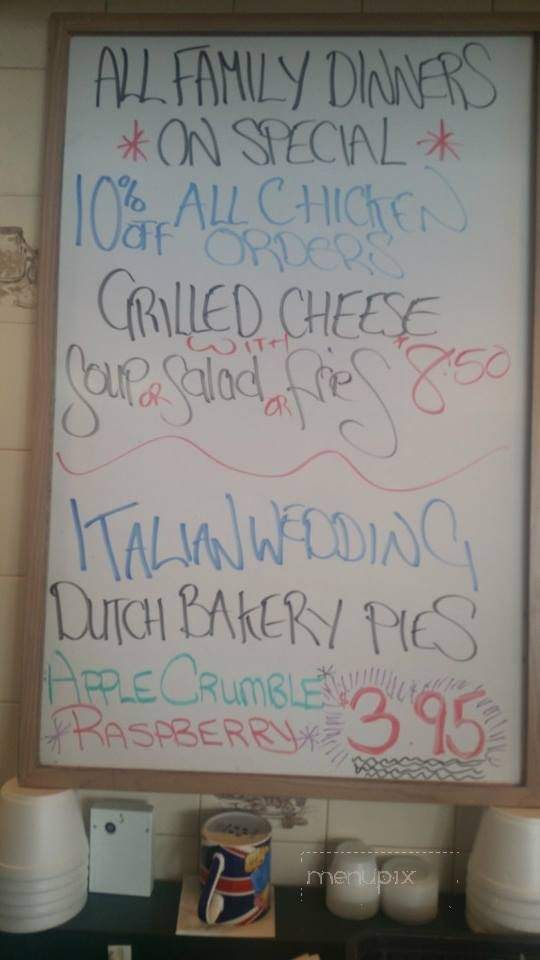 ALL FAMILY DINNERS
* ON SPECIAL *
10% OFF ALL CHICKEN
ORDERS
GRILLED CHEESE
WITH
Soup OR Salad OR fries $8.50
ITALIAN WEDDING
DUTCH BAKERY PIES
APPLE CRUMBLE
*RASPBERRY* $3.95
menupix